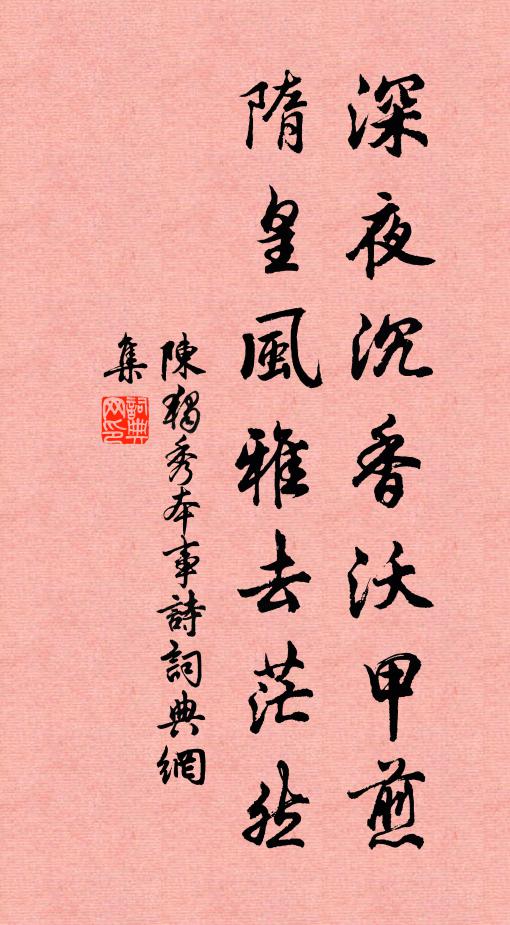 深夜沉香沃甲煎
隋皇風雅去茫然
陳獨秀本事詩詞典網
集
詞典
网印